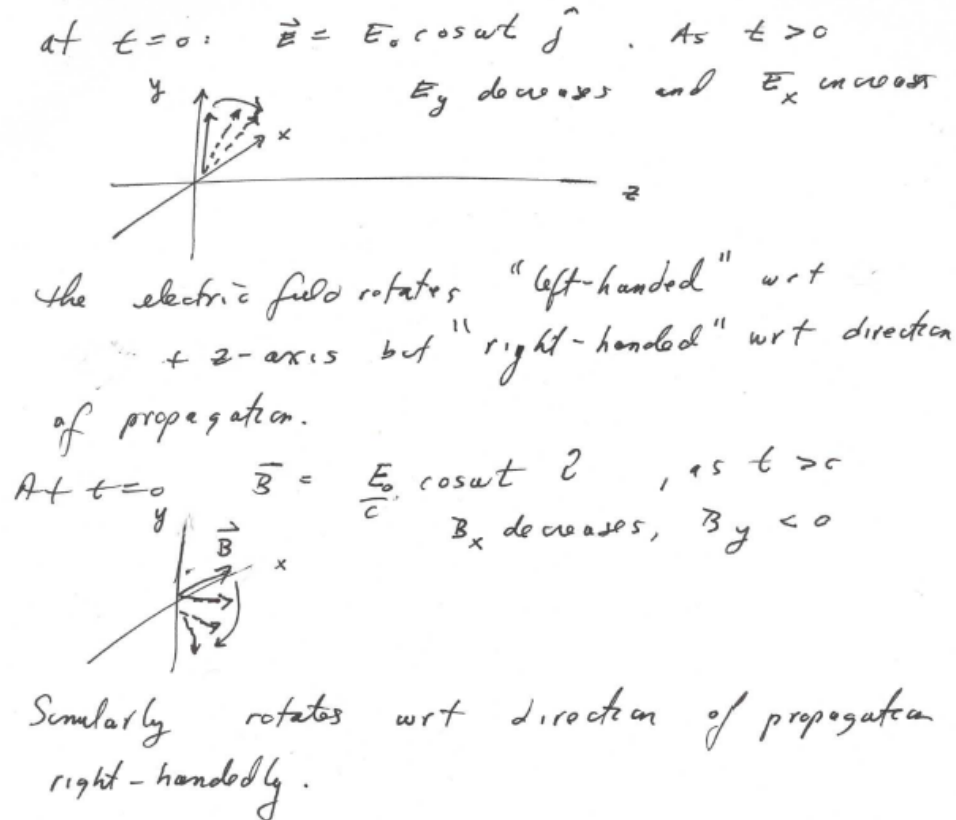 at t=0: E⃗ = E₀ cosωt ĵ . As t >0
E_y decreases and E_x increases
y
x
z
the electric field rotates "left-handed" wrt
+ z-axis but "right-handed" wrt direction
of propagation.
At t=0 B⃗ = E₀/c cosωt î , as t >0
B_x decreases, B_y < 0
y
B⃗
x
Similarly rotates wrt direction of propagation
right-handedly.